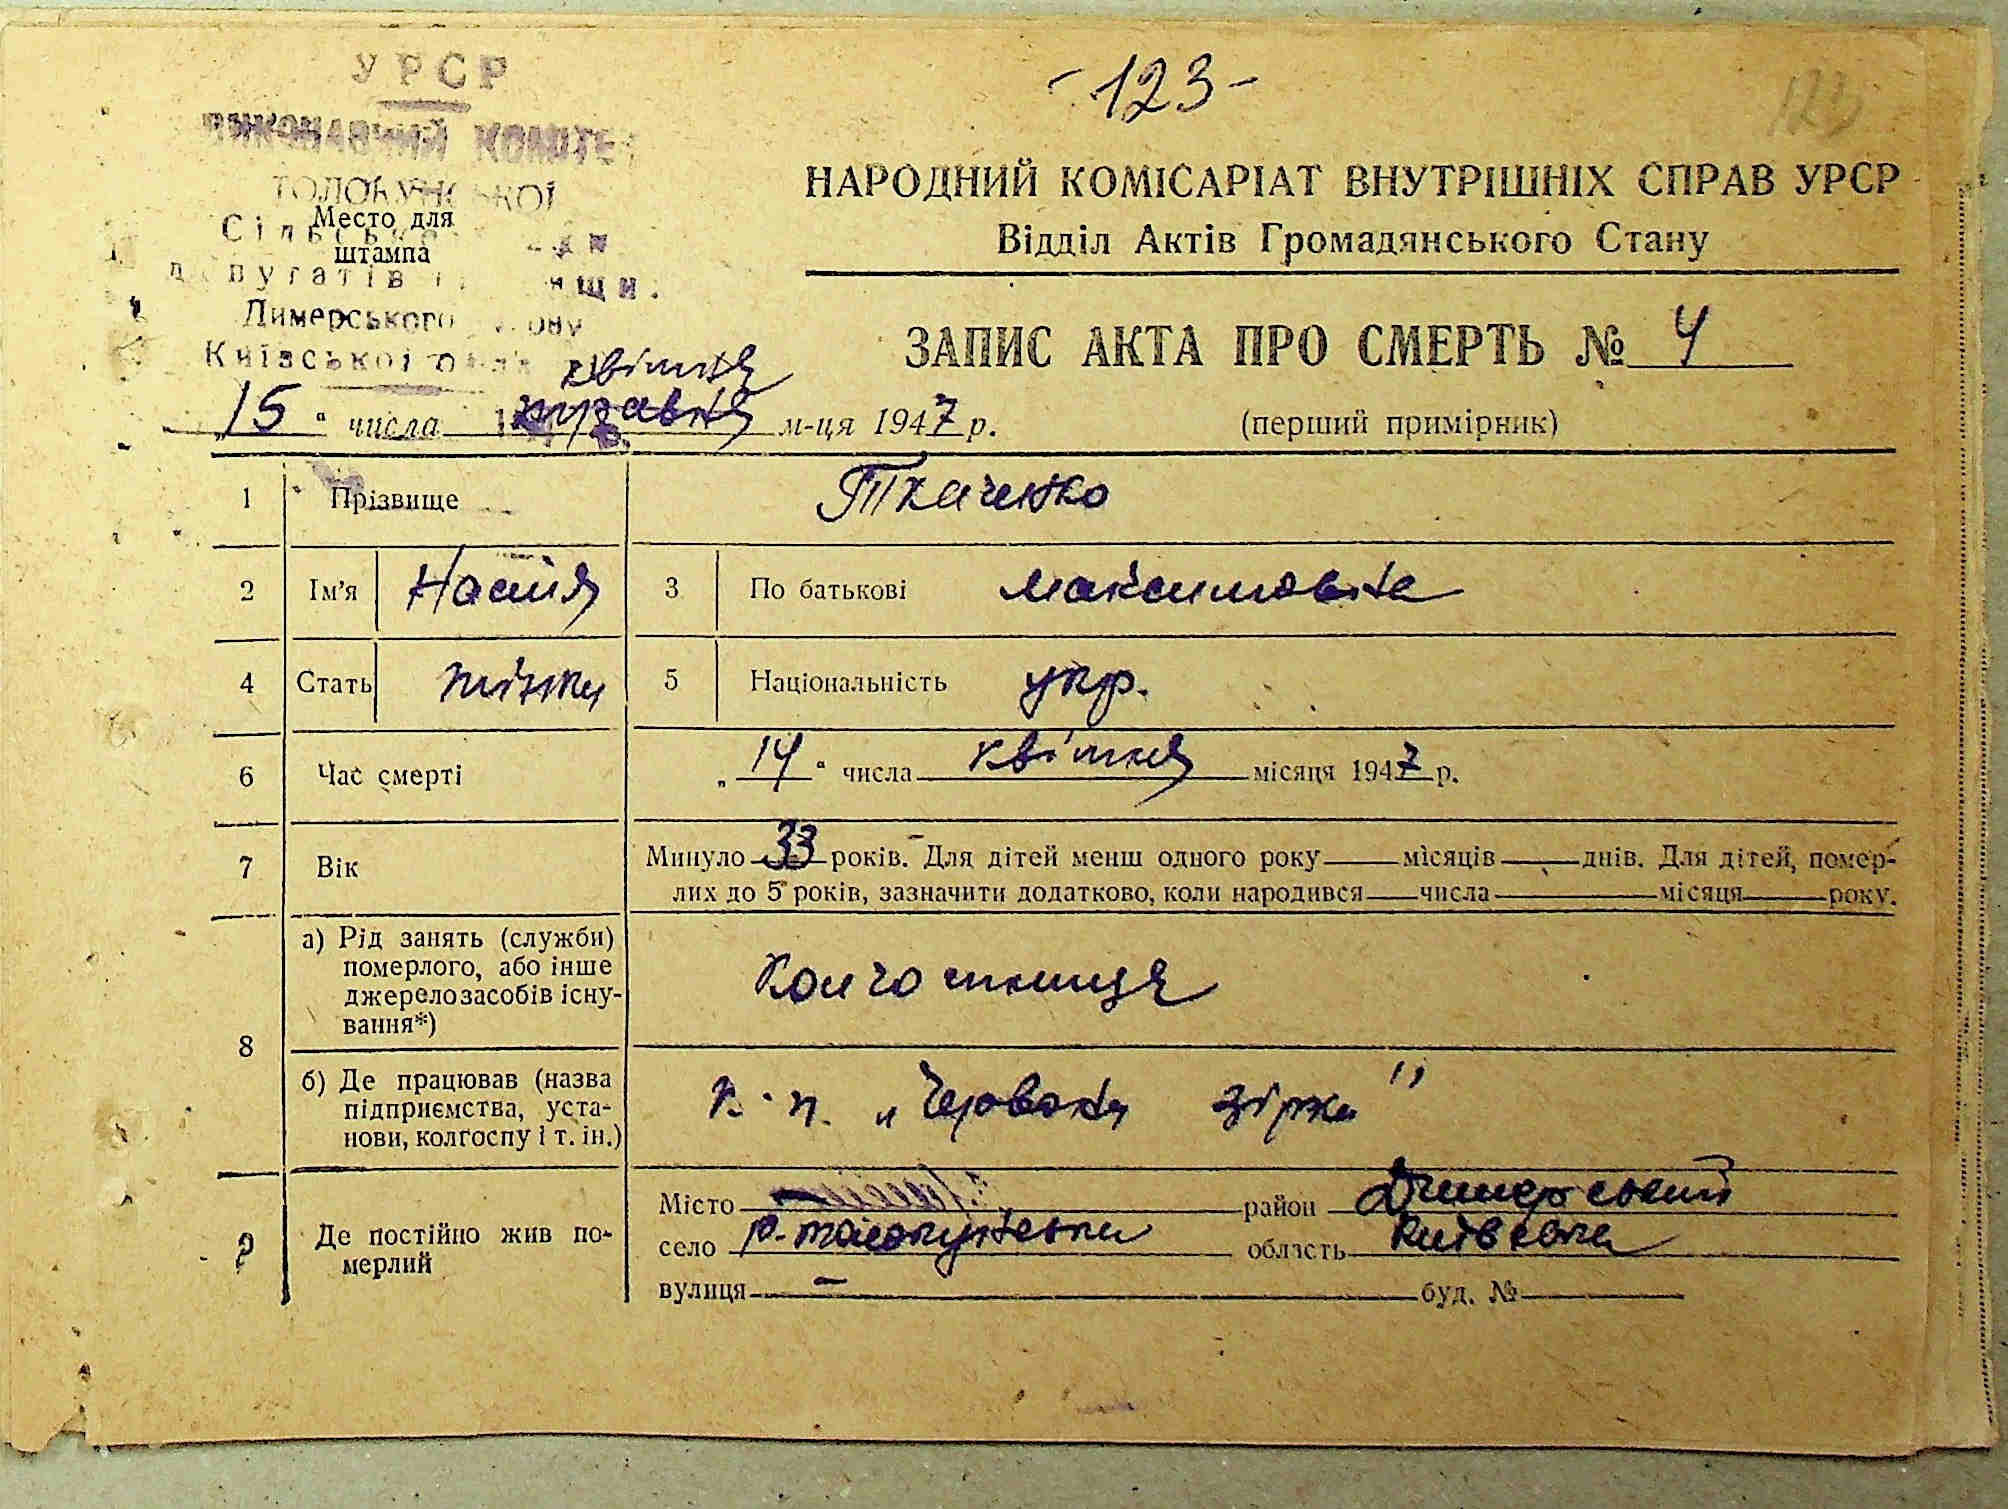 УРСР
-123-
123
ВИКОНАВЧИЙ КОМІТЕТ
ТОЛОКУНСЬКОЇ
Место для
штампа
Сільської Ради
депутатів трудящи.
Димерського району
Київської обл.
НАРОДНИЙ КОМІСАРІАТ ВНУТРІШНІХ СПРАВ УРСР
Відділ Актів Громадянського Стану
ЗАПИС АКТА ПРО СМЕРТЬ № 4
(перший примірник)
квітня
„15“ числа травня м-ця 1947 р.
1 Прізвище Ткаченко
2 Ім'я Настя 3 По батькові максимовна
4 Стать жінка 5 Національність укр.
6 Час смерті „14“ числа квітня місяця 1947 р.
7 Вік Минуло 33 років. Для дітей менш одного року місяців днів. Для дітей, помер-
лих до 5 років, зазначити додатково, коли народився числа місяця року.
8 а) Рід занять (служби)
померлого, або інше
джерело засобів існу-
вання*)
Колгоспниця
б) Де працював (назва
підприємства, уста-
нови, колгоспу і т. ін.)
к. п. „Червона зірка"
9 Де постійно жив по-
мерлий
Місто — район Димерський
село Толокунська область Київська
вулиця — буд. №